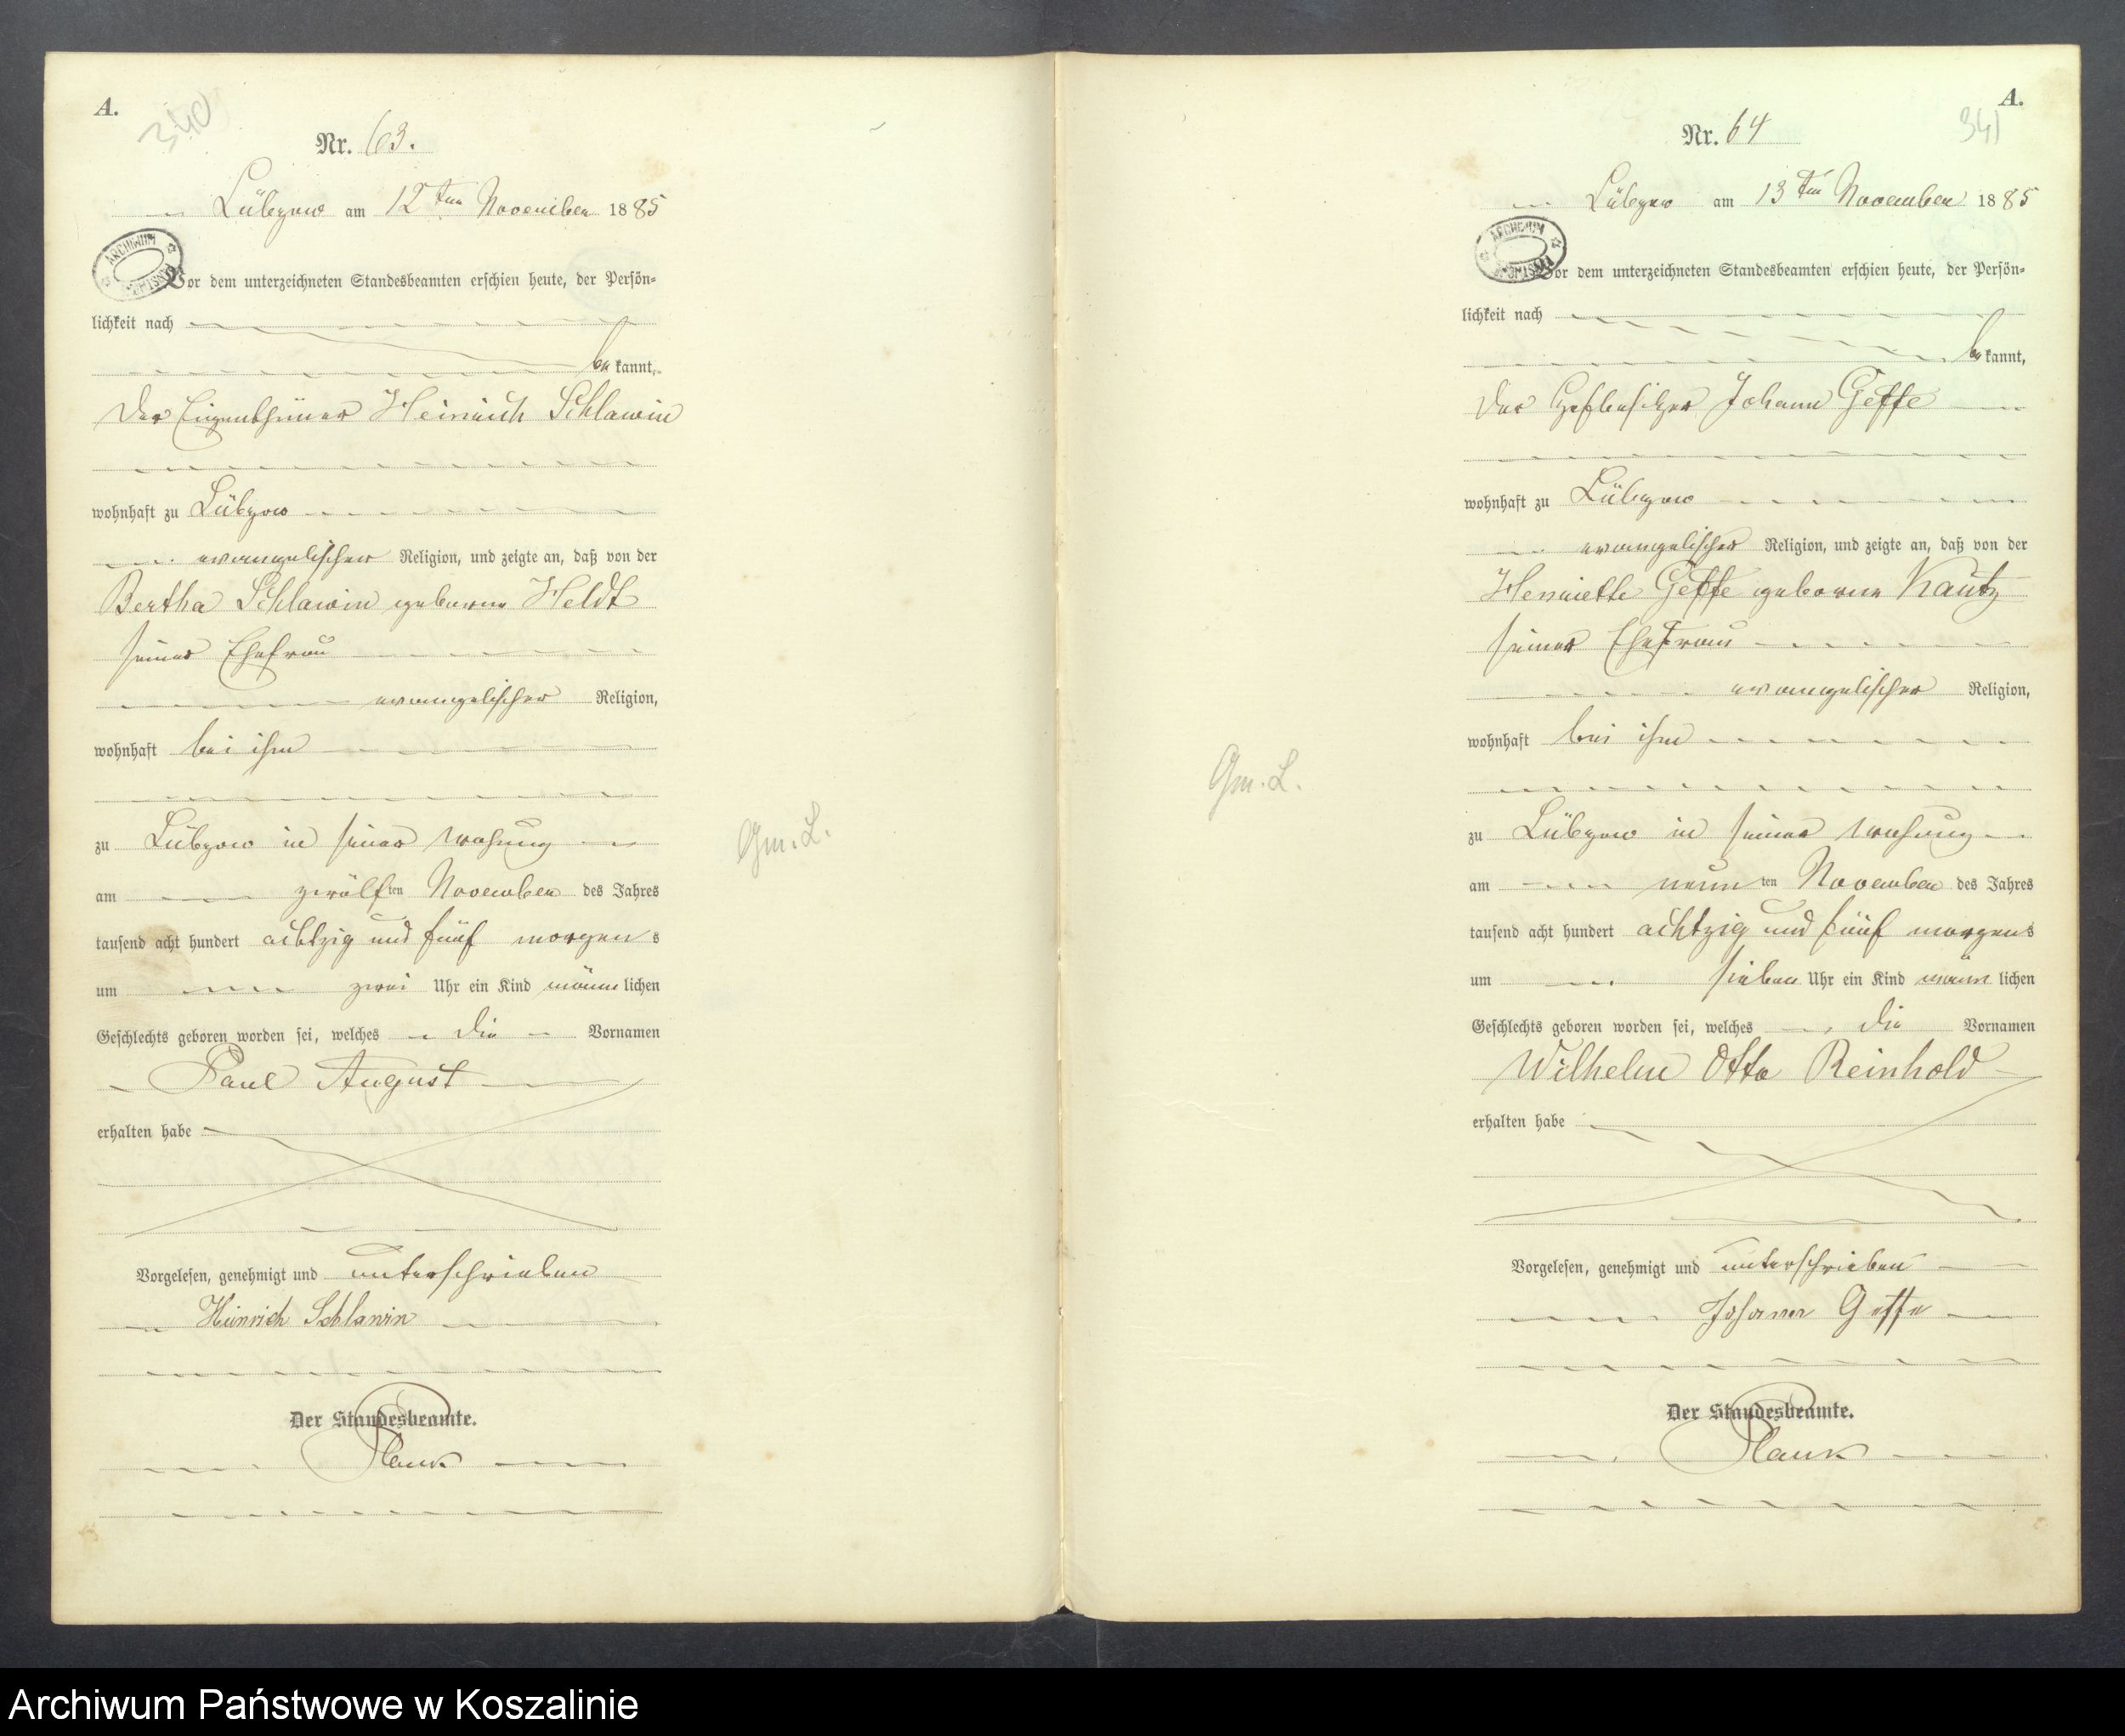 A.
340
Nr. 63.
Lübzow am 12ten November 1885
ARCHIWUM
Vor dem unterzeichneten Standesbeamten erschien heute, der Persön-
lichkeit nach
bekannt,
der Eigenthümer Heinrich Schlawin
wohnhaft zu Lübzow
evangelischer Religion, und zeigte an, daß von der
Bertha Schlawin geborene Heldt
seiner Ehefrau
evangelischer Religion,
wohnhaft bei ihm
zu Lübzow in seiner Wohnung
am zwölften November des Jahres
tausend acht hundert achtzig und fünf morgens
um zwei Uhr ein Kind männlichen
Geschlechts geboren worden sei, welches die Vornamen
Paul August
erhalten habe
Vorgelesen, genehmigt und unterschrieben
Heinrich Schlawin
Der Standesbeamte.
Gm. L.
A.
341
Nr. 64
Lübzow am 13ten November 1885
ARCHIWUM
Vor dem unterzeichneten Standesbeamten erschien heute, der Persön-
lichkeit nach
bekannt,
der Hofbesitzer Johann Geffe
wohnhaft zu Lübzow
evangelischer Religion, und zeigte an, daß von der
Henriette Geffe geborene Kautz
seiner Ehefrau
evangelischer Religion,
wohnhaft bei ihm
zu Lübzow in seiner Wohnung
am neunten November des Jahres
tausend acht hundert achtzig und fünf morgens
um sieben Uhr ein Kind männlichen
Geschlechts geboren worden sei, welches die Vornamen
Wilhelm Otto Reinhold
erhalten habe
Vorgelesen, genehmigt und unterschrieben
Johann Geffe
Der Standesbeamte.
Gm. L.
Archiwum Państwowe w Koszalinie